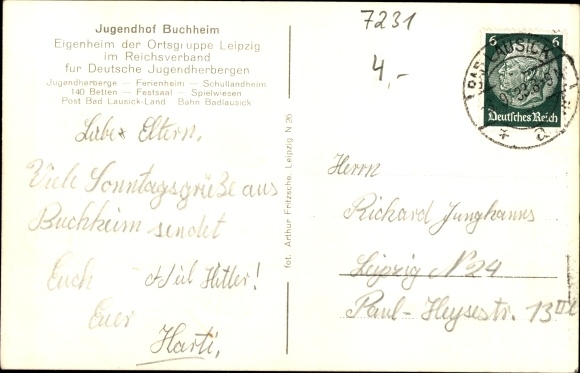 Jugendhof Buchheim
Eigenheim der Ortsgruppe Leipzig
im Reichsverband
für Deutsche Jugendherbergen
Jugendherberge — Ferienheim — Schullandheim
140 Betten — Festsaal — Spielwiesen
Post Bad Lausick-Land Bahn Badlausick
Liebe Eltern,
Viele Sonntagsgrüße aus
Buchheim sendet
Euch
Heil Hitler!
Euer
Harti,
fot. Arthur Fritzsche, Leipzig, N 26
7231
4,-
6 6
BAD LAUSICK
Deutsches Reich
* a
Herrn
Richard Junghanns
Leipzig N 24
Paul-Heysestr. 13